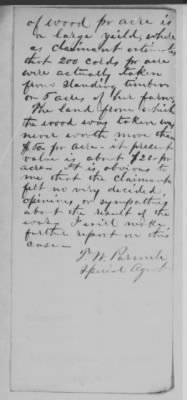 of wood pr acre is
a large yield, where
as claimant estimates
that 200 cords pr acre
were actually taken
from standing timber
on 5 acres of her farm.
The land from which
the wood was taken was
never worth more than
$50 pr acre - at present
value is about $20 pr
acre. It is obvious to
me that the claimant
felt no very decided
opinions or sympathies
about the result of the
war. I will make
further report on this
case -
Special Agent